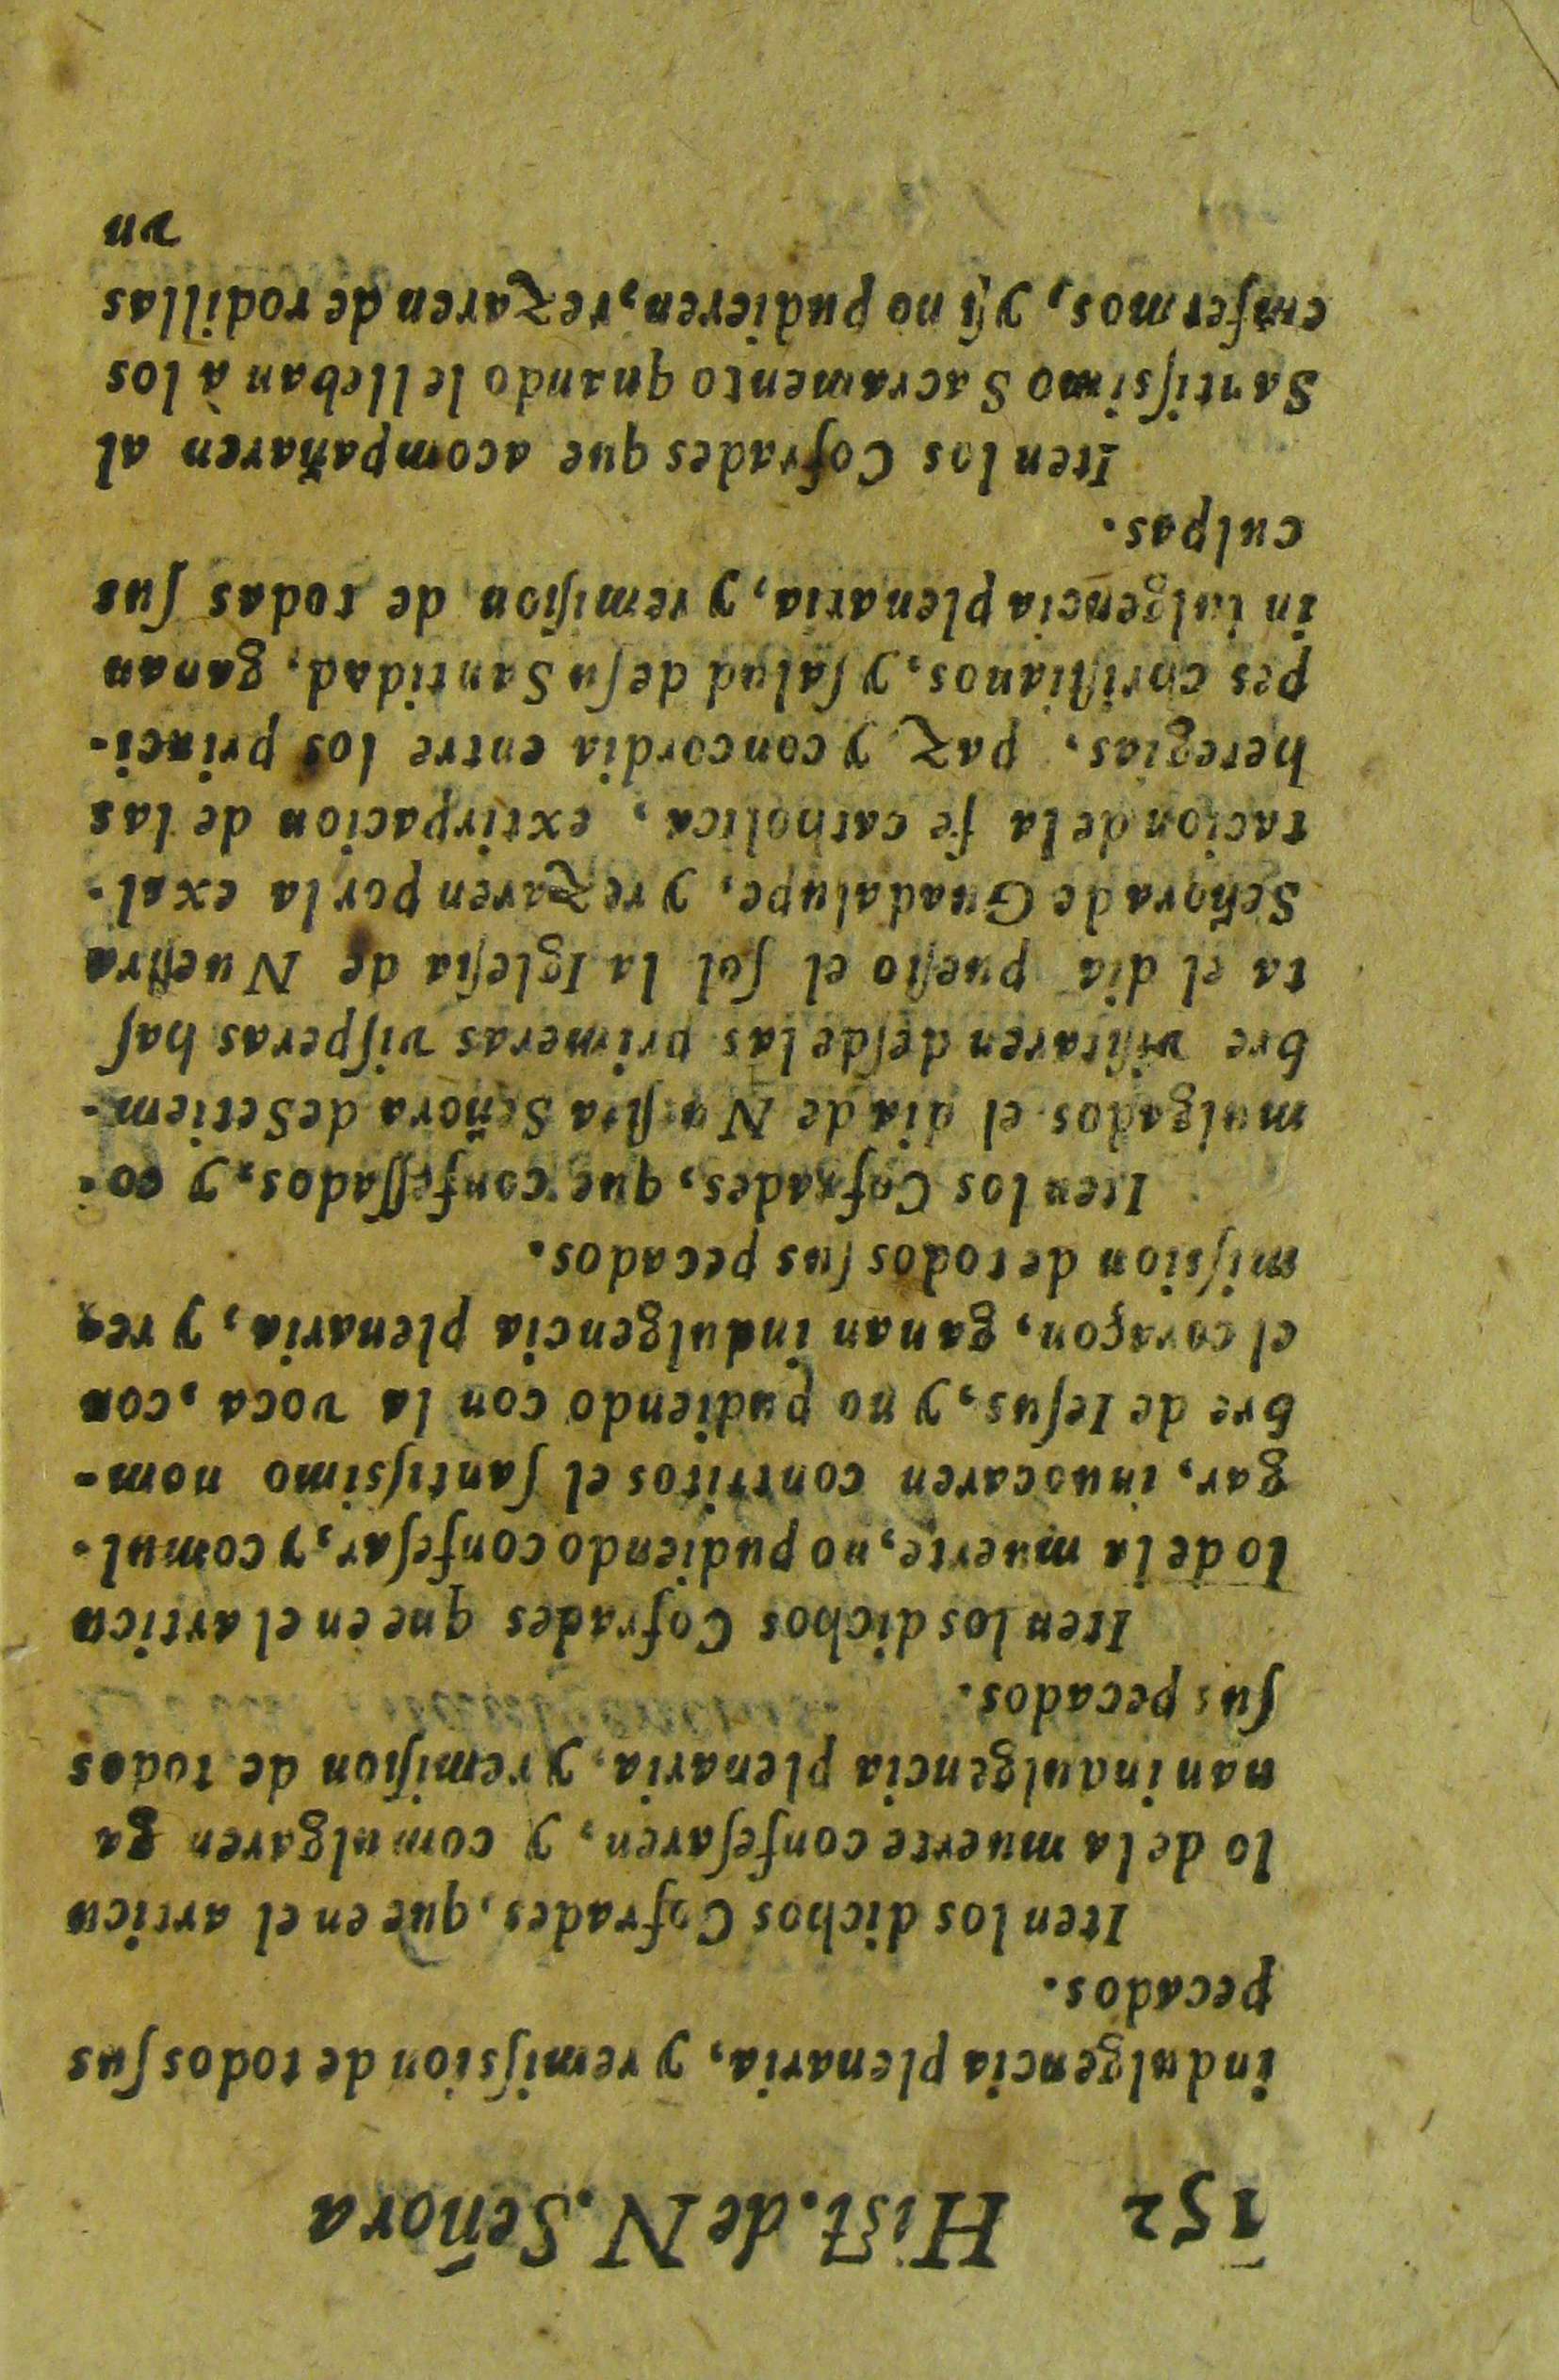 152 Hist. de N. Señora
indulgencia plenaria, y remiſsion de todos ſus
pecados.
Iten los dichos Cofrades, que en el articu
lo de la muerte confeſaren, y comulgaren ga
nan indulgencia plenaria, y remiſion de todos
ſus pecados.
Iten los dichos Cofrades que en el articu
lo de la muerte, no pudiendo confeſar, y comul-
gar, inuocaren contritos el ſantiſsimo nom-
bre de Ieſus, y no pudiendo con la voca, con
el coraçon, ganan indulgencia plenaria, y re-
miſsion de todos ſus pecados.
Iten los Cofrades, que confeſſados, y co-
mulgados el dia de Nueſtra Señora de Setiem-
bre viſitaren deſde las primeras viſperas haſ
ta el dia pueſto el ſol la Igleſia de Nueſtra
Señora de Guadalupe, y rezaren por la exal-
tacion de la fe catholica, extirpacion de las
heregias, paz y concordia entre los princi-
pes chriſtianos, y ſalud de ſu Santidad, ganan
indulgencia plenaria, y remiſion de todas ſus
culpas.
Iten los Cofrades que acompañaren al
Santiſsimo Sacramento quando le lleban à los
enfermos, y ſi no pudieren, rezaren de rodillas
vn